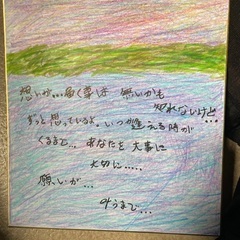 想いが...届く事は 無いかも
知れないけど...
ずっと想っているよ。いつか逢える時が
くるまで... あなたを大事に
大切に.....
願いが...
叶うまで...